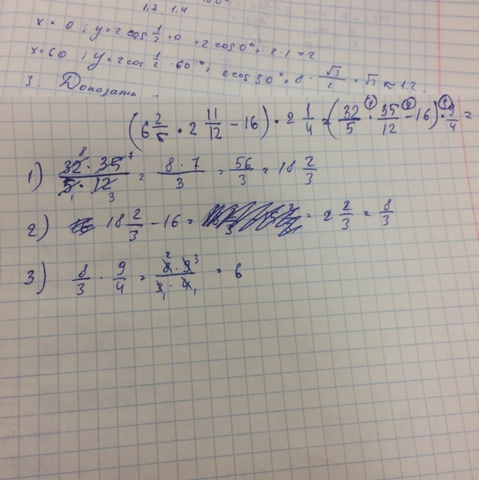 1,7 1,4
x = 0 ; y = 2 cos 1/2 · 0 = 2 cos 0° = 2 · 1 = 2
x = 60 ; y = 2 cos 1/2 · 60° = 2 cos 30° = 2 · √3/2 = √3 ≈ 1.2.
3. Доказать
(6 2/5 · 2 11/12 − 16) · 2 1/4 = (32/5 · 35/12 − 16) · 9/4 =
1) 32 · 35 / 5 · 12 = 8 · 7 / 3 = 56/3 = 18 2/3
2) 18 2/3 − 16 = = 2 2/3 = 8/3
3) 8/3 · 9/4 = 8 · 9 / 3 · 4 = 6